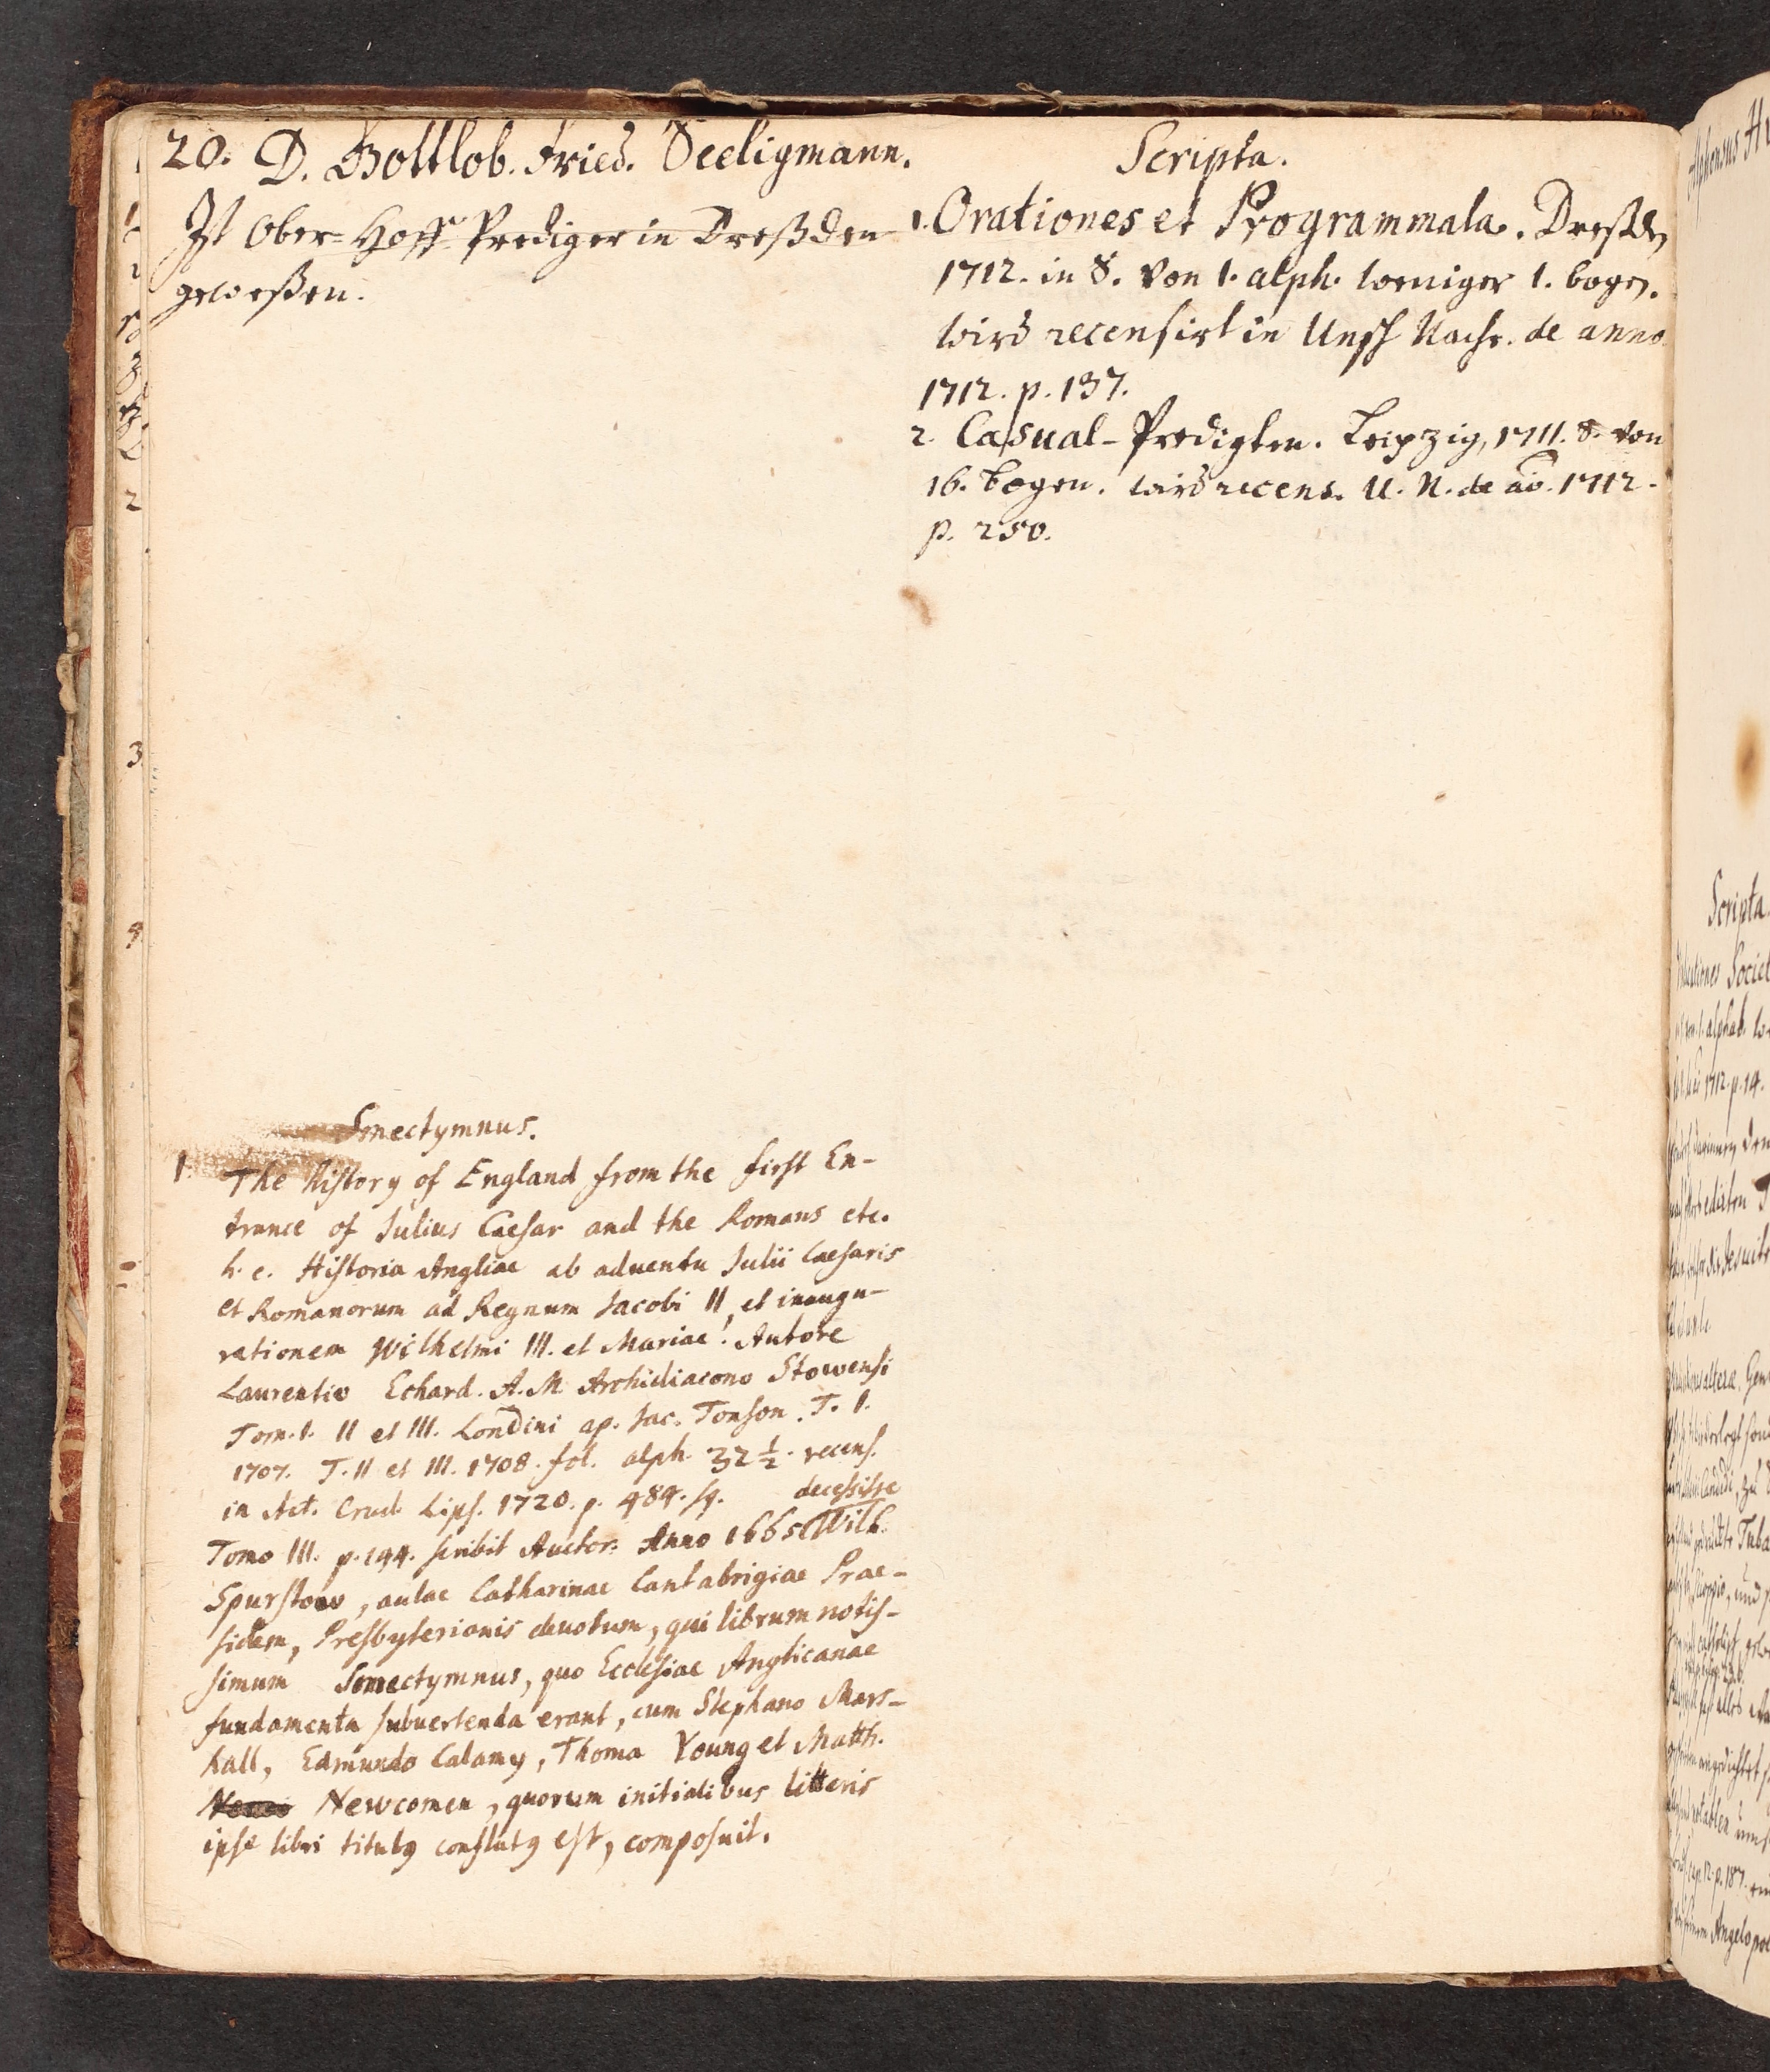 20. D. Gottlob. Fried. Seeligmann.
Ist Ober-Hoff-Prediger in Dreßden
geweßen.
Scripta.
1. Orationes et Programmata. Dreßden
1712. in 8. von 1. alph. weniger 1. bogen.
wird recensirt in Unsch Nachr. de anno
1712. p. 137.
2. Casual-Predigten. Leipzig, 1711. 8. von
16. bogen. wird recens. U. N. de ao. 1712.
p. 250.
Smectymnus.
1. The History of England from the first En-
trance of Julius Caesar and the Romans etc.
h. e. Historia Angliae ab adventu Julii Caesaris
et Romanorum ad Regnum Jacobi II, et inaugu-
rationem Wilhelmi III. et Mariae! Autore
Laurentio Echard. A. M. Archidiacono Stowensi
Tom. I. II et III. Londini ap. Jac. Tonson. T. I.
1707. T. II et III. 1708. fol. alph. 32 1/2. recens.
in Act. Erud. Lips. 1720. p. 484. sq.
decessisse
Tomo III. p. 144. scribit Auctor: Anno 1665 Wilh.
Spurstow, aulae Catharinae Cantabrigiae Prae-
sidem, Presbyterianis devotum, qui librum notis-
simum Smectymnus, quo Ecclesiae Anglicanae
fundamenta subvertenda erant, cum Stephano Mars-
hall, Edmundo Calamy, Thoma Young et Matth.
Newcomen, quorum initialibus litteris
ipse libri titulus conflatus est, composuit.